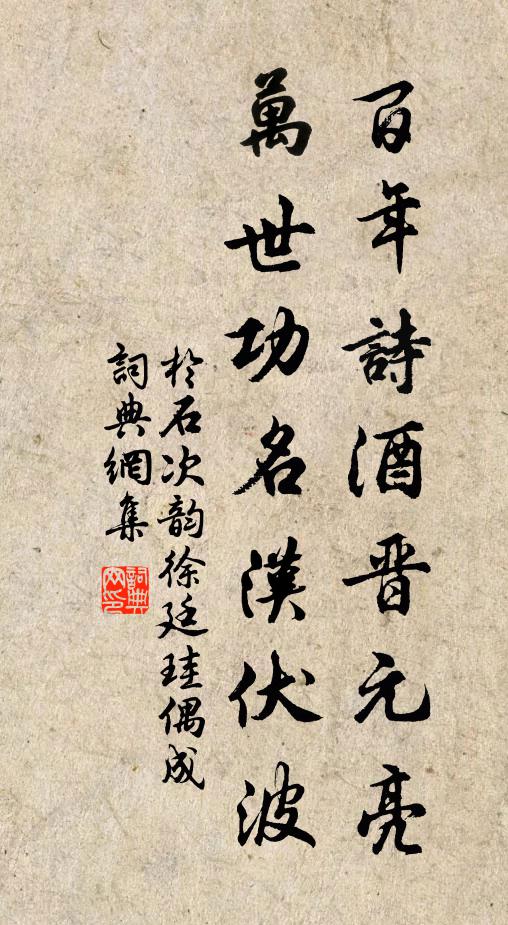 百年詩酒晋元亮
萬世功名漢伏波
於石次韵徐廷珪偶成
詞典網集
詞典